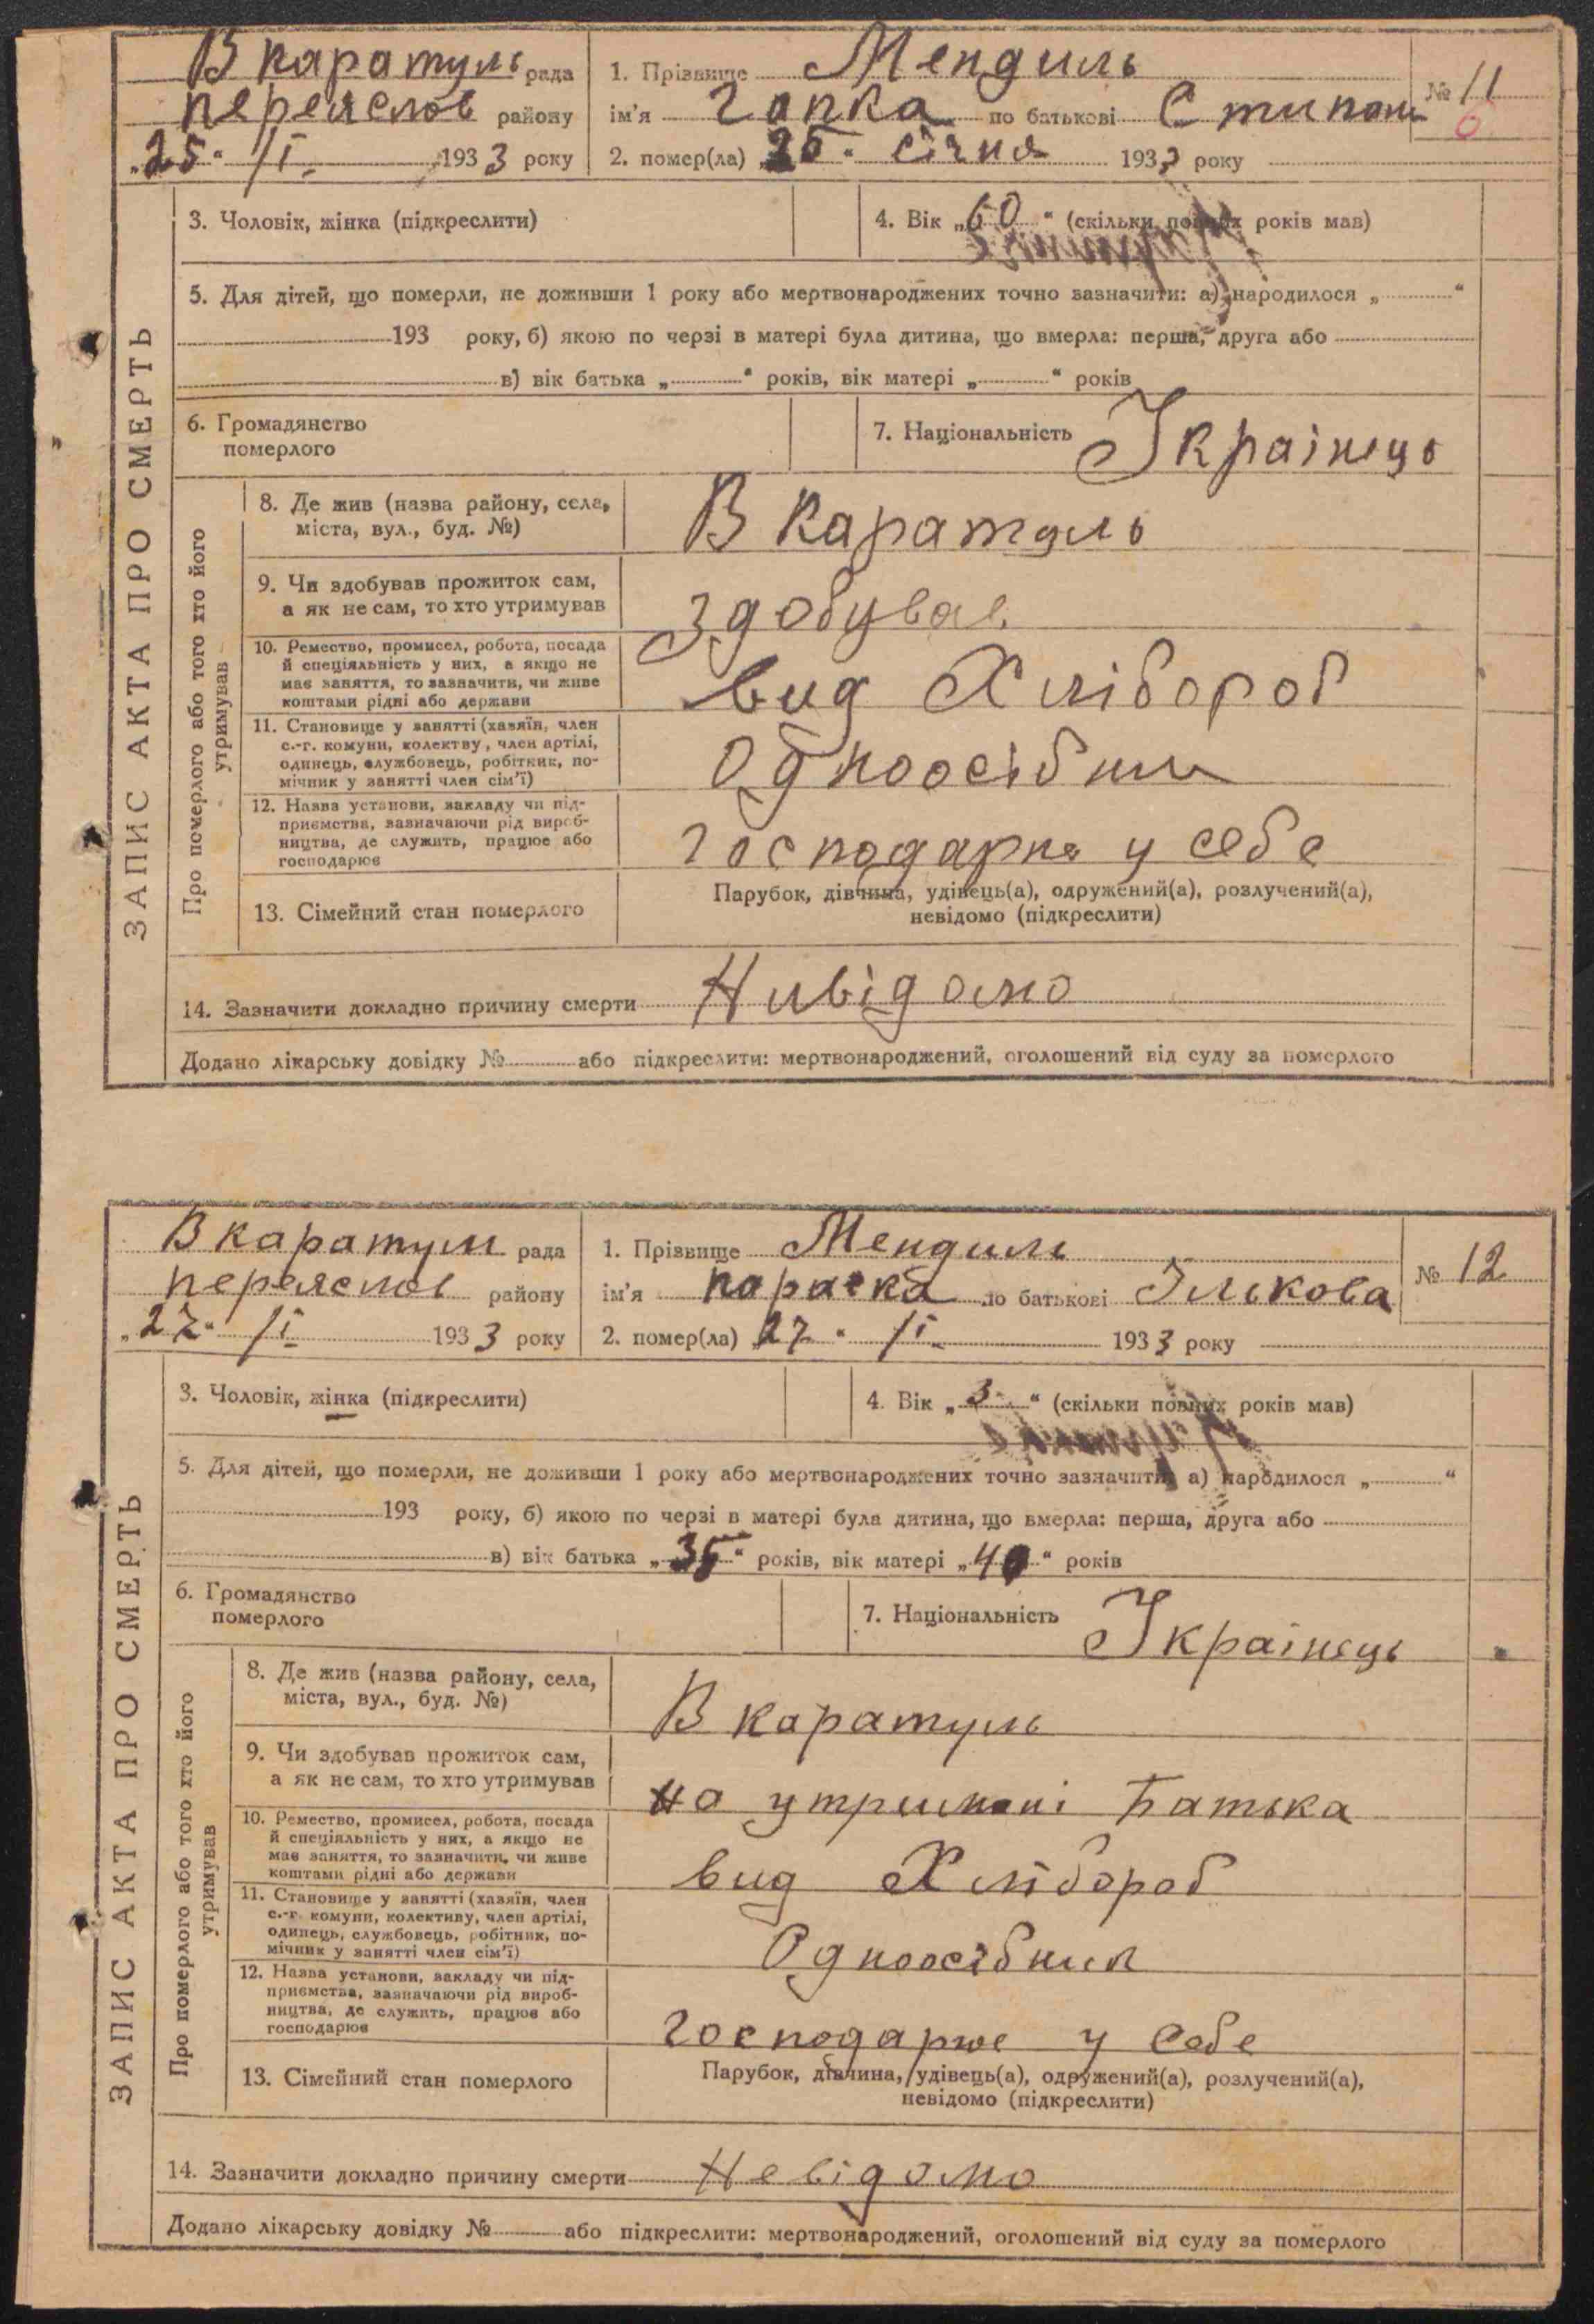 В каратуль рада
переяслов району
„25“ /І 1933 року
1. Прізвище Мендиль
ім'я Гапка по батькові Стипан
2. помер(ла) „25“ січня 1933 року
№ 11
6
3. Чоловік, жінка (підкреслити)
4. Вік „60“ (скільки повних років мав)
5. Для дітей, що померли, не доживши 1 року або мертвонароджених точно зазначити: а) народилося „ “
193 року, б) якою по черзі в матері була дитина, що вмерла: перша, друга або
в) вік батька „ “ років, вік матері „ “ років
6. Громадянство
померлого
7. Національність Українець
ЗАПИС АКТА ПРО СМЕРТЬ
Про померлого або того хто його
утримував
8. Де жив (назва району, села,
міста, вул., буд. №)
В Каратуль
9. Чи здобував прожиток сам,
а як не сам, то хто утримував
здобував
10. Ремество, промисел, робота, посада
й спеціяльність у них, а якщо не
має заняття, то зазначити, чи живе
коштами рідні або держави
вид Хлібороб
11. Становище у занятті (хазяїн, член
с.-г. комуни, колективу, член артілі,
одинець, службовець, робітник, по-
мічник у занятті член сім'ї)
Одноосібни
12. Назва установи, закладу чи під-
приємства, зазначаючи рід вироб-
ництва, де служить, працює або
господарює
господарює у себе
13. Сімейний стан померлого
Парубок, дівчина, удівець(а), одружений(а), розлучений(а),
невідомо (підкреслити)
14. Зазначити докладно причину смерти Нивідомо
Додано лікарську довідку № або підкреслити: мертвонароджений, оголошений від суду за померлого
В каратули рада
переяслов району
„27“ /І 1933 року
1. Прізвище Мендиль
ім'я параска по батькові Ількова
2. помер(ла) „27“ /І 1933 року
№ 12
3. Чоловік, жінка (підкреслити)
4. Вік „3“ (скільки повних років мав)
5. Для дітей, що померли, не доживши 1 року або мертвонароджених точно зазначити: а) народилося „ “
193 року, б) якою по черзі в матері була дитина, що вмерла: перша, друга або
в) вік батька „35“ років, вік матері „40“ років
6. Громадянство
померлого
7. Національність Українець
ЗАПИС АКТА ПРО СМЕРТЬ
Про померлого або того хто його
утримував
8. Де жив (назва району, села,
міста, вул., буд. №)
В каратуль
9. Чи здобував прожиток сам,
а як не сам, то хто утримував
на утримані Батька
10. Ремество, промисел, робота, посада
й спеціяльність у них, а якщо не
має заняття, то зазначити, чи живе
коштами рідні або держави
вид Хлібороб
11. Становище у занятті (хазяїн, член
с.-г. комуни, колективу, член артілі,
одинець, службовець, робітник, по-
мічник у занятті член сім'ї)
Одноосібник
12. Назва установи, закладу чи під-
приємства, зазначаючи рід вироб-
ництва, де служить, працює або
господарює
господарює у себе
13. Сімейний стан померлого
Парубок, дівчина, удівець(а), одружений(а), розлучений(а),
невідомо (підкреслити)
14. Зазначити докладно причину смерти Невідомо
Додано лікарську довідку № або підкреслити: мертвонароджений, оголошений від суду за померлого